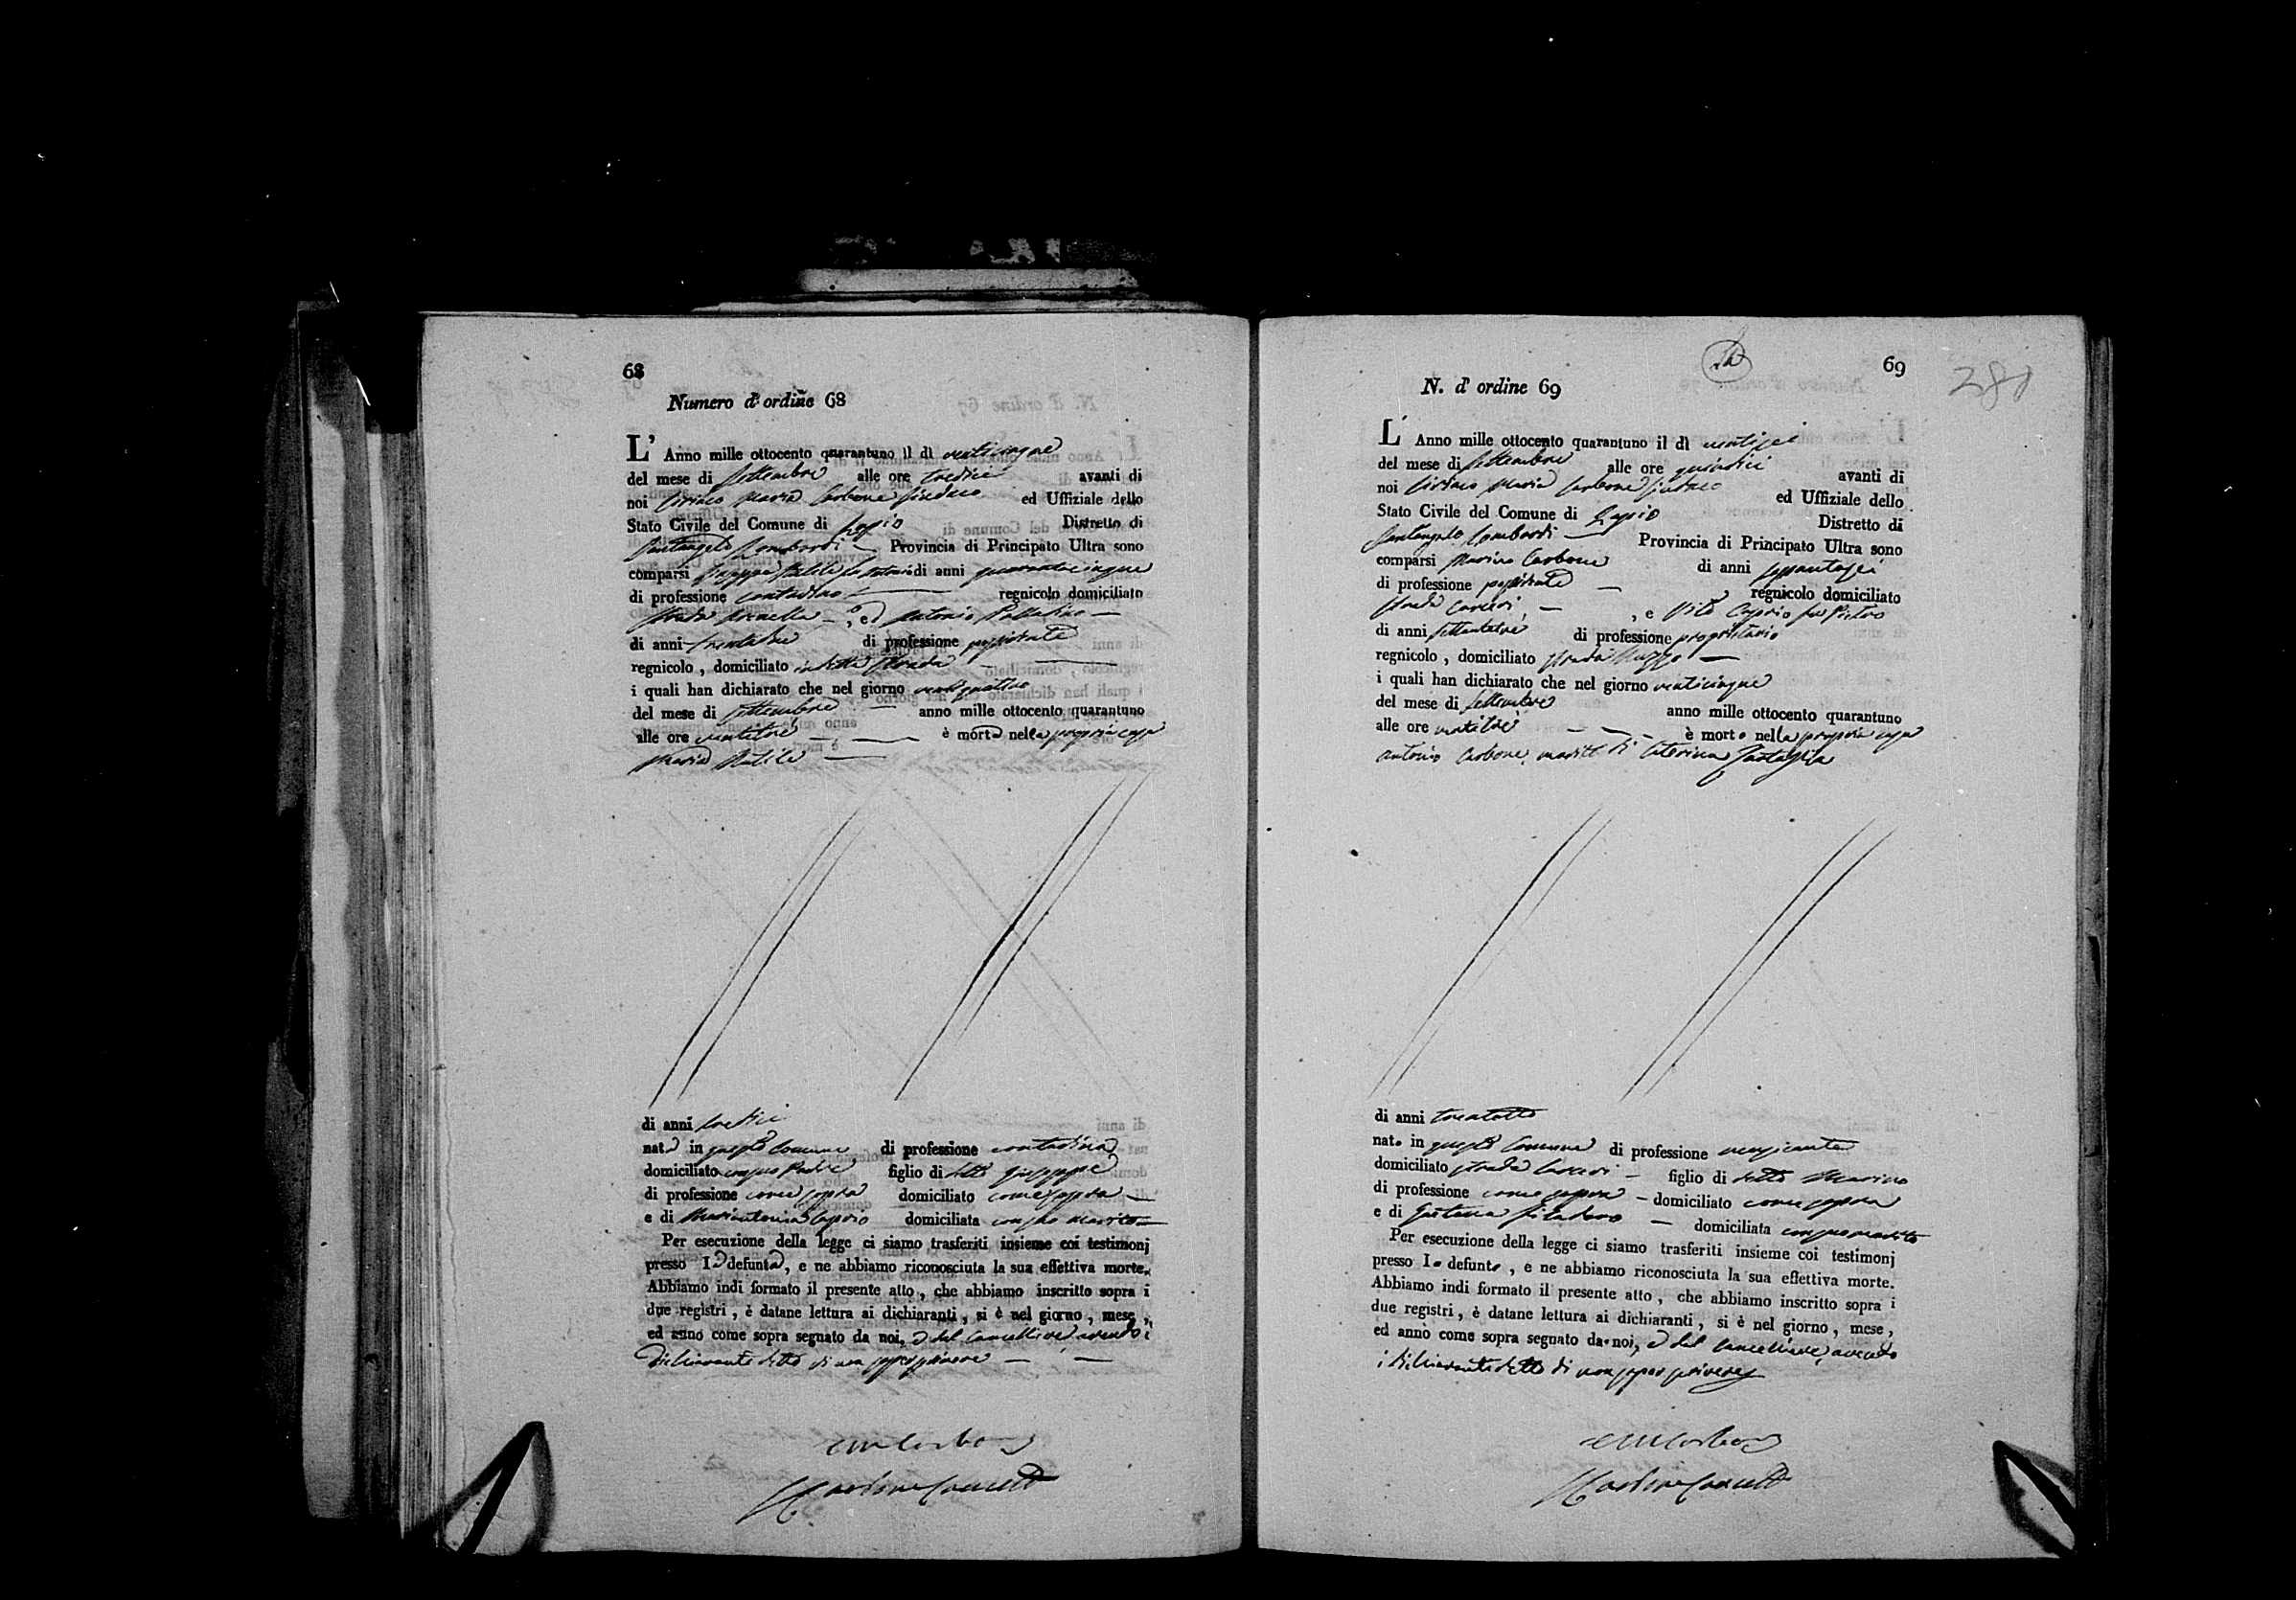 68
Numero d' ordine 68
L' Anno mille ottocento quarantuno il dì venticinque
del mese di Settembre alle ore tredici avanti di
noi Ciriaco Maria Carbone Sindaco ed Uffiziale dello
Stato Civile del Comune di Lapio Distretto di
Santangelo Lombardi Provincia di Principato Ultra sono
comparsi Giuseppe di anni quarantacinque
di professione contadino regnicolo domiciliato
Strada , ed Antonio
di anni di professione
regnicolo , domiciliato in detta Strada
i quali han dichiarato che nel giorno ventiquattro
del mese di Settembre anno mille ottocento quarantuno
alle ore ventitrè è morta nella propria casa
Maria
di anni
nata in questo Comune di professione contadina
domiciliato con suo Padre figlio di detto Giuseppe
di professione come sopra domiciliato come sopra
e di Mariantonia Caprio domiciliata con suo marito
Per esecuzione della legge ci siamo trasferiti insieme coi testimonj
presso la defunta, e ne abbiamo riconosciuta la sua effettiva morte.
Abbiamo indi formato il presente atto, che abbiamo inscritto sopra i
due registri, è datane lettura ai dichiaranti, si è nel giorno, mese,
ed anno come sopra segnato da noi, e dal Cancelliere, avendo i
dichiaranti detto di non saper scrivere
69
280
N. d' ordine 69
L' Anno mille ottocento quarantuno il dì ventisei
del mese di Settembre alle ore quindici avanti di
noi Ciriaco Maria Carbone Sindaco ed Uffiziale dello
Stato Civile del Comune di Lapio Distretto di
Santangelo Lombardi Provincia di Principato Ultra sono
comparsi Marino Carbone di anni sessantasei
di professione regnicolo domiciliato
Strada Carceri , e Vito Caprio fu Pietro
di anni settantatrè di professione proprietario
regnicolo , domiciliato strada
i quali han dichiarato che nel giorno venticinque
del mese di Settembre anno mille ottocento quarantuno
alle ore ventitrè è morto nella propria casa
Antonio Carbone, marito di Caterina
di anni trentotto
nato in questo Comune di professione
domiciliato strada Carceri figlio di detto Marino
di professione come sopra domiciliato come sopra
e di Gaetana domiciliata con suo marito
Per esecuzione della legge ci siamo trasferiti insieme coi testimonj
presso lo defunto, e ne abbiamo riconosciuta la sua effettiva morte.
Abbiamo indi formato il presente atto, che abbiamo inscritto sopra i
due registri, è datane lettura ai dichiaranti, si è nel giorno, mese,
ed anno come sopra segnato da noi, e dal Cancelliere, avendo
i dichiaranti detto di non saper scrivere